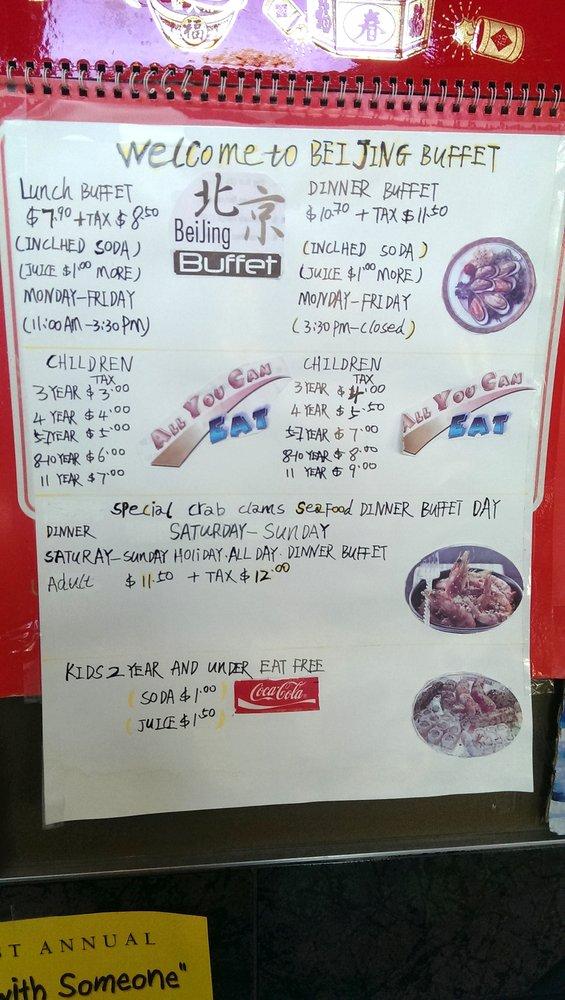 福
春
Welcome to BEIJING BUFFET
Lunch BUFFET
$7.90 + TAX $8.50
(INCLHED SODA)
(JUICE $1.00 MORE)
MONDAY-FRIDAY
(11:00AM-3:30PM)
北京
BeiJing
Buffet
DINNER BUFFET
$10.70 + TAX $11.50
(INCLHED SODA)
(JUICE $1.00 MORE)
MONDAY-FRIDAY
(3:30PM-closed)
CHILDREN
TAX
3 YEAR $3.00
4 YEAR $4.00
5-7 YEAR $5.00
8-10 YEAR $6.00
11 YEAR $7.00
ALL YOU CAN
EAT
CHILDREN
TAX
3 YEAR $4.00
4 YEAR $5.50
5-7 YEAR $7.00
8-10 YEAR $8.00
11 YEAR $9.00
ALL YOU CAN
EAT
Special crab clams Seafood DINNER BUFFET DAY
DINNER SATURDAY-SUNDAY
SATURAY-SUNDAY HOLIDAY.ALL DAY.DINNER BUFFET
Adult $11.50 + TAX $12.00
KIDS 2 YEAR AND UNDER EAT FREE
(SODA $1.00)
(JUICE $1.50)
Coca-Cola
ST ANNUAL
with Someone"